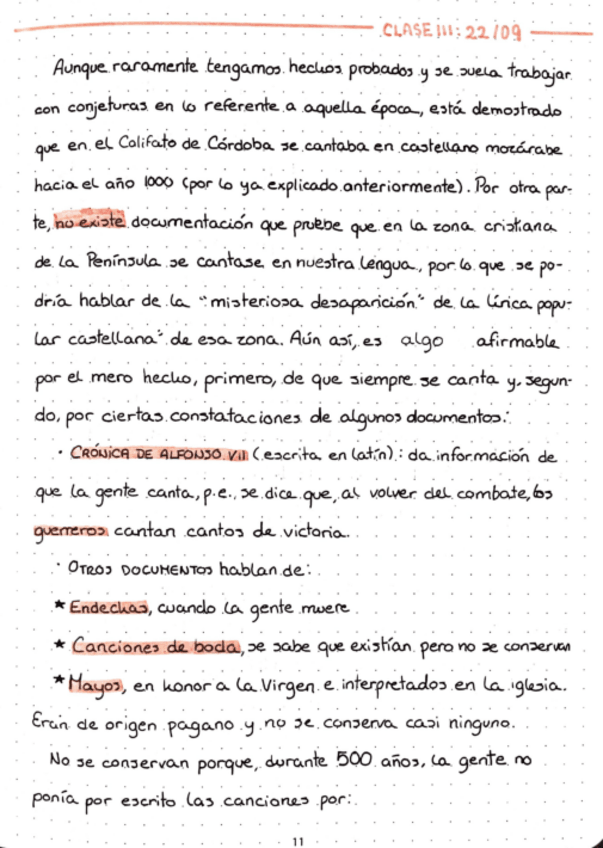 CLASE III: 22/09
Aunque raramente tengamos hechos probados y se suela trabajar
con conjeturas en lo referente a aquella época, está demostrado
que en el Califato de Córdoba se cantaba en castellano mozárabe
hacia el año 1000 (por lo ya explicado anteriormente). Por otra par-
te, no existe documentación que pruebe que en la zona cristiana
de la Península se cantase en nuestra lengua, por lo que se po-
dría hablar de la "misteriosa desaparición" de la lírica popu-
lar castellana" de esa zona. Aún así, es algo afirmable
por el mero hecho, primero, de que siempre se canta y, segun-
do, por ciertas constataciones de algunos documentos:
· CRÓNICA DE ALFONSO VII (escrita en latín): da información de
que la gente canta, p.e., se dice que, al volver del combate, los
guerreros cantan cantos de victoria.
· OTROS DOCUMENTOS hablan de:
★ Endechas, cuando la gente muere
★ Canciones de boda, se sabe que existían pero no se conservan
★ Mayos, en honor a la Virgen e interpretados en la iglesia.
Eran de origen pagano y no se conserva casi ninguno.
No se conservan porque, durante 500 años, la gente no
ponía por escrito las canciones por:
11